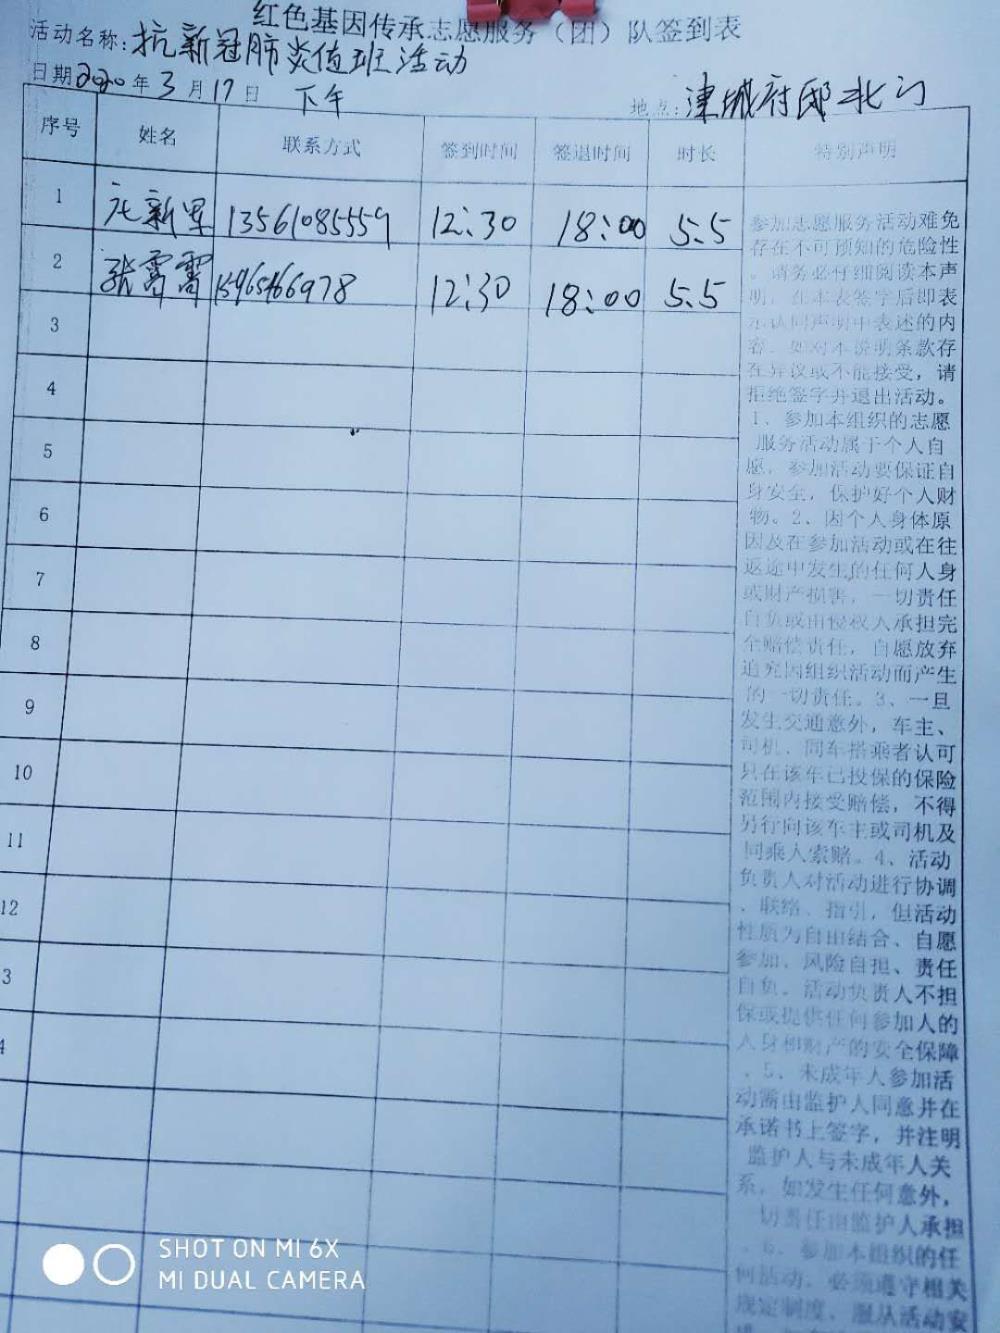 红色基因传承志愿服务（团）队签到表
活动名称：抗新冠肺炎值班活动
日期2020年3月17日 下午 地点：涑城府邸北门
序号 姓名 联系方式 签到时间 签退时间 时长 特别声明
1 新军 13561085559 12:30 18:00 5.5
2 张霄霄 12:30 18:00 5.5
3
4
5
6
7
8
9
10
11
12
3
4
参加志愿服务活动难免
存在不可预知的危险性
。请务必仔细阅读本声
明，在本表签字后即表
示认同声明中表述的内
容。如对本说明条款存
在异议或不能接受，请
拒绝签字并退出活动。
1、参加本组织的志愿
服务活动属于个人自
愿，参加活动要保证自
身安全，保护好个人财
物。2、因个人身体原
因及在参加活动或在往
返途中发生的任何人身
或财产损害，一切责任
自负或由侵权人承担完
全赔偿责任，自愿放弃
追究因组织活动而产生
的一切责任。3、一旦
发生交通意外，车主、
司机、同车搭乘者认可
只在该车已投保的保险
范围内接受赔偿，不得
另行向该车主或司机及
同乘人索赔。4、活动
负责人对活动进行协调
、联络、指引，但活动
性质为自由结合、自愿
参加、风险自担、责任
自负。活动负责人不担
保或提供任何参加人的
人身和财产的安全保障
。5、未成年人参加活
动需由监护人同意并在
承诺书上签字，并注明
监护人与未成年人关
系，如发生任何意外，
一切责任由监护人承担
。6、参加本组织的任
何活动，必须遵守相关
规定制度，服从活动安
SHOT ON MI 6X
MI DUAL CAMERA